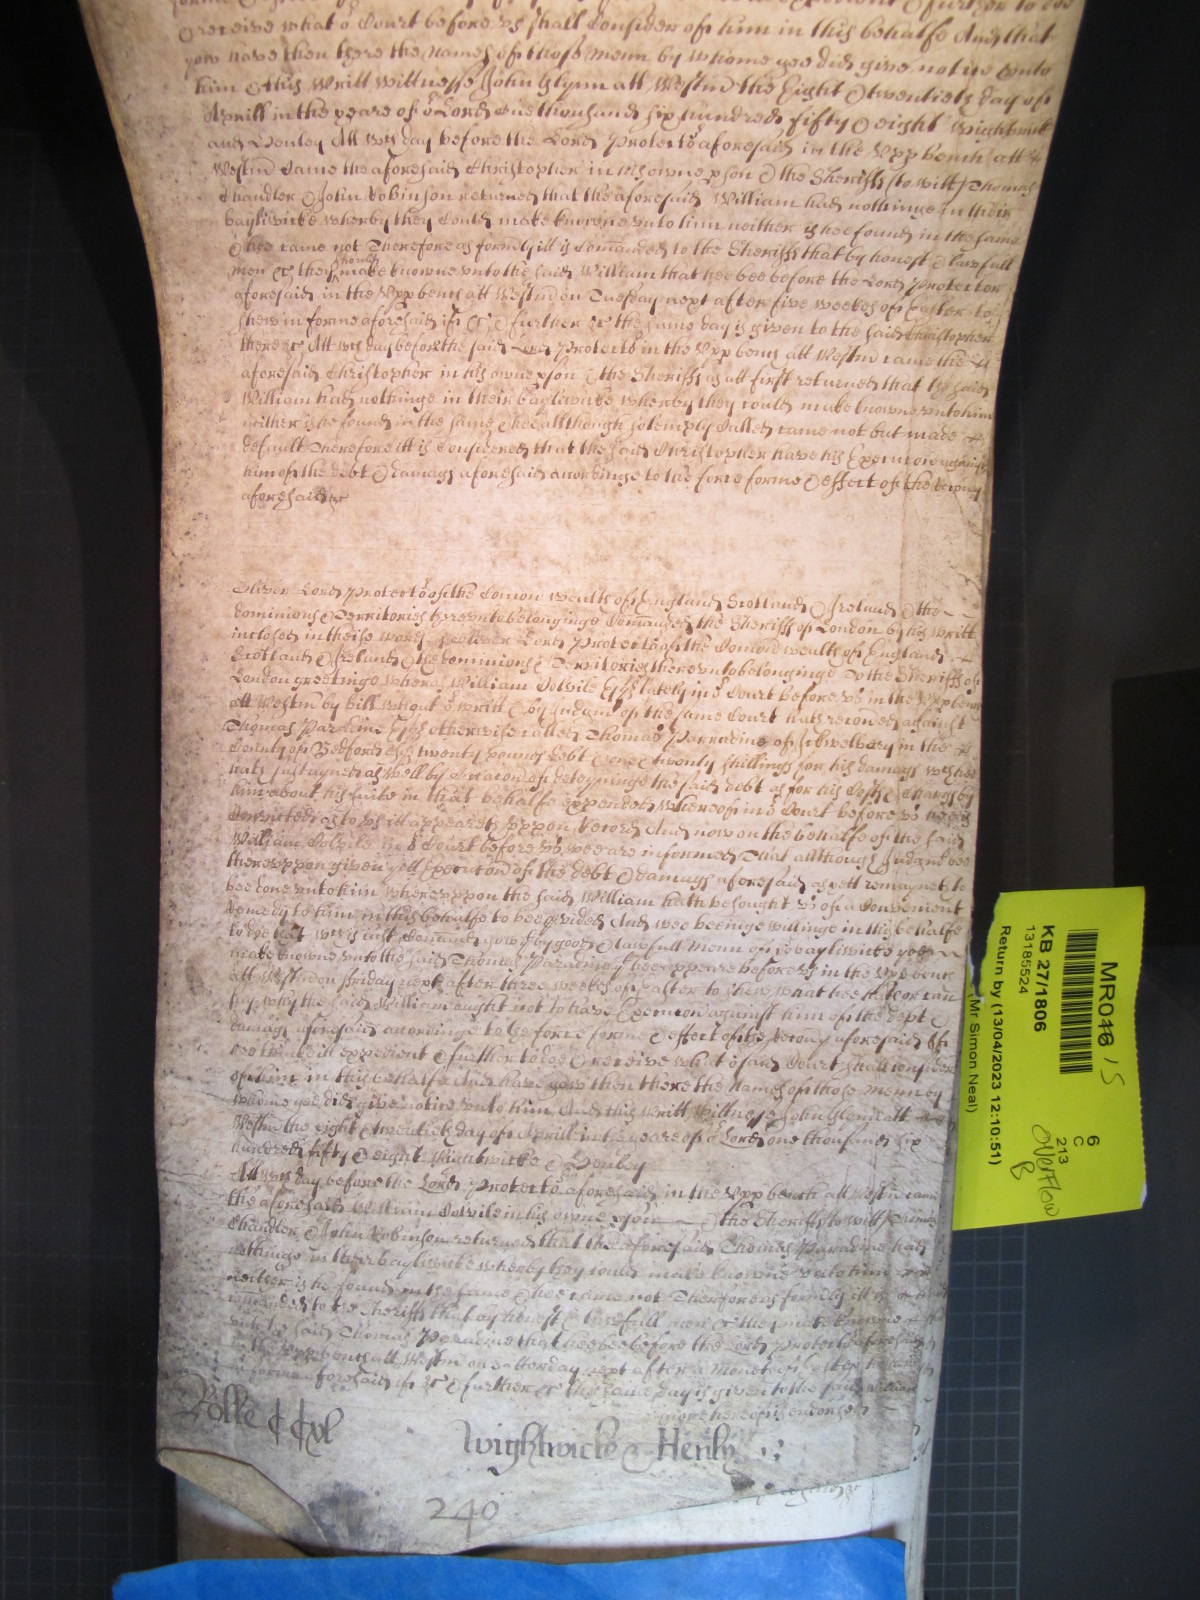 receive what o Court before us shall Consider of him in this behalfe And that
yow have then there the Names of those menn by whome yee did give notice unto
him & this Writt Wittnesse John Glynn att Westm the Eight & twentieth day of
Aprill in the yeare of o Lord One thousand six hundred fifty & eight Wightwick
and Henley Att wch day before the Lord Protector aforesaid in the Upp bench att
Westm Came the aforesaid Christopher in his owne pson & the Sheriffs (to witt) Thomas
Chandler & John Robinson returned that the aforesaid William had nothinge in their
bayliwicke wherby they Could make knowne unto him neither is hee found in the same
& hee came not Therefore as formly itt is Comanded to the Sheriffs that by honest & lawfull
men &c they should make knowne unto the said William that hee bee before the Lord Protector
aforesaid in the Upp bench att Westm on Tuesday next after five weekes of Easter to
shew in forme aforesaid if &c & further &c the same day is given to the said Christopher
there &c Att wch day before the said Lord Protector in the Upp bench att Westm came the
aforesaid Christopher in his owne pson & the Sheriffs as att first returned that the said
William had nothinge in their bayliwicke wherby they could make knowne unto him
neither is he found in the same & hee allthough solemply Called came not but made
default Therefore itt is Considered that the said Christopher have his Execucon against
him of the debt & damags aforesaid accordinge to the force forme & effect of the recovy
aforesaid &c
Oliver Lord Protector of the Comon wealth of England Scotland & Ireland & the
dominions & Territories thereunto belonginge Comanded the Sheriffs of London by his writt
inclosed in theise words Oliver Lord Protector of the Comon wealth of England
Scotland & Ireland & the dominions & Territories thereunto belonginge To the Sheriffs of
London greetinge wheras William Colvile Esq lately in o Court before us in the Upp bench
att Westm by bill without o writt & by Judgmt of the same Court hath recoved against
Thomas Paradine Esq otherwise called Thomas Parradine of in the
County of Bedford Esq twenty pounds debt & twenty shillings for his damags wch hee
hath susteyned as well by occacon of deteyninge the said debt as for his Costs & Chargs by
him about his suite in that behalfe expended Whereof in o Court before us hee is
Convicted as to us itt appeareth uppon Record And now on the behalfe of the said
William Colvile in o Court before us wee are informed That allthough Judgmt bee
thereuppon given yett Execucon of the debt & damags aforesaid as yett remayneth to
bee done unto him whereuppon the said William hath besought us of a Convenient
remedy to him in this behalfe to bee pvided And wee beeinge willinge in this behalfe
to doe that wch is iust Comand yow that by good & lawfull menn of yo bayliwicke yee
make knowne unto the said Thomas Paradine that hee appeare before us in the Upp bench
att Westm on Friday next after three weekes of Easter to shew what hee hath or can
say why the said William ought not to have Execucon against him of the debt &
damags aforesaid accordinge to the force forme & effect of the recovy aforesaid If
hee thinke itt expedient & further to doe & receive what o said Court shall consider
of him in this behalfe And have yow then there the Names of those menn by
whome yee did give notice unto him And this writt Wittnesse John Glynn att
Westm the eight & twentieth day of Aprill in the yeare of o Lord one thousand six
hundred fifty & eight Wightwicke & Henley
Att wch day before the Lord Protector aforesaid in the Upp bench att Westm came
the aforesaid William Colvile in his owne pson & the Sheriffs to witt Thomas
Chandler & John Robinson returned that the aforesaid Thomas Paradine had
nothinge in their bayliwicke whereby they could make knowne unto him
neither is he found in the same & hee came not Therefore as formly itt is
comanded to the Sheriffs that by honest & lawfull men &c they make knowne
unto the said Thomas Paradine that hee bee before the Lord Protector aforesaid
in the Upp bench att Westm on Satterday next after a Moneth of Easter to shew
in forme aforesaid if &c & further &c the same day is given to the said William
more hereof is endorsed
Rolle CCxl
Wightwicke & Henly
240
MR016 15
KB 27/1806
13185524
Return by (13/04/2023 12:10:51)
(Mr Simon Neal)
6
C
213
overflow
B